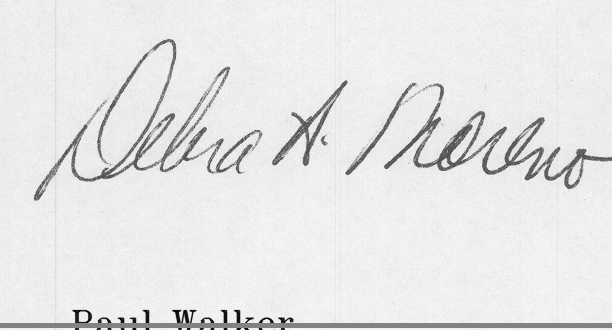 Debra A. Moreno
Paul Walker